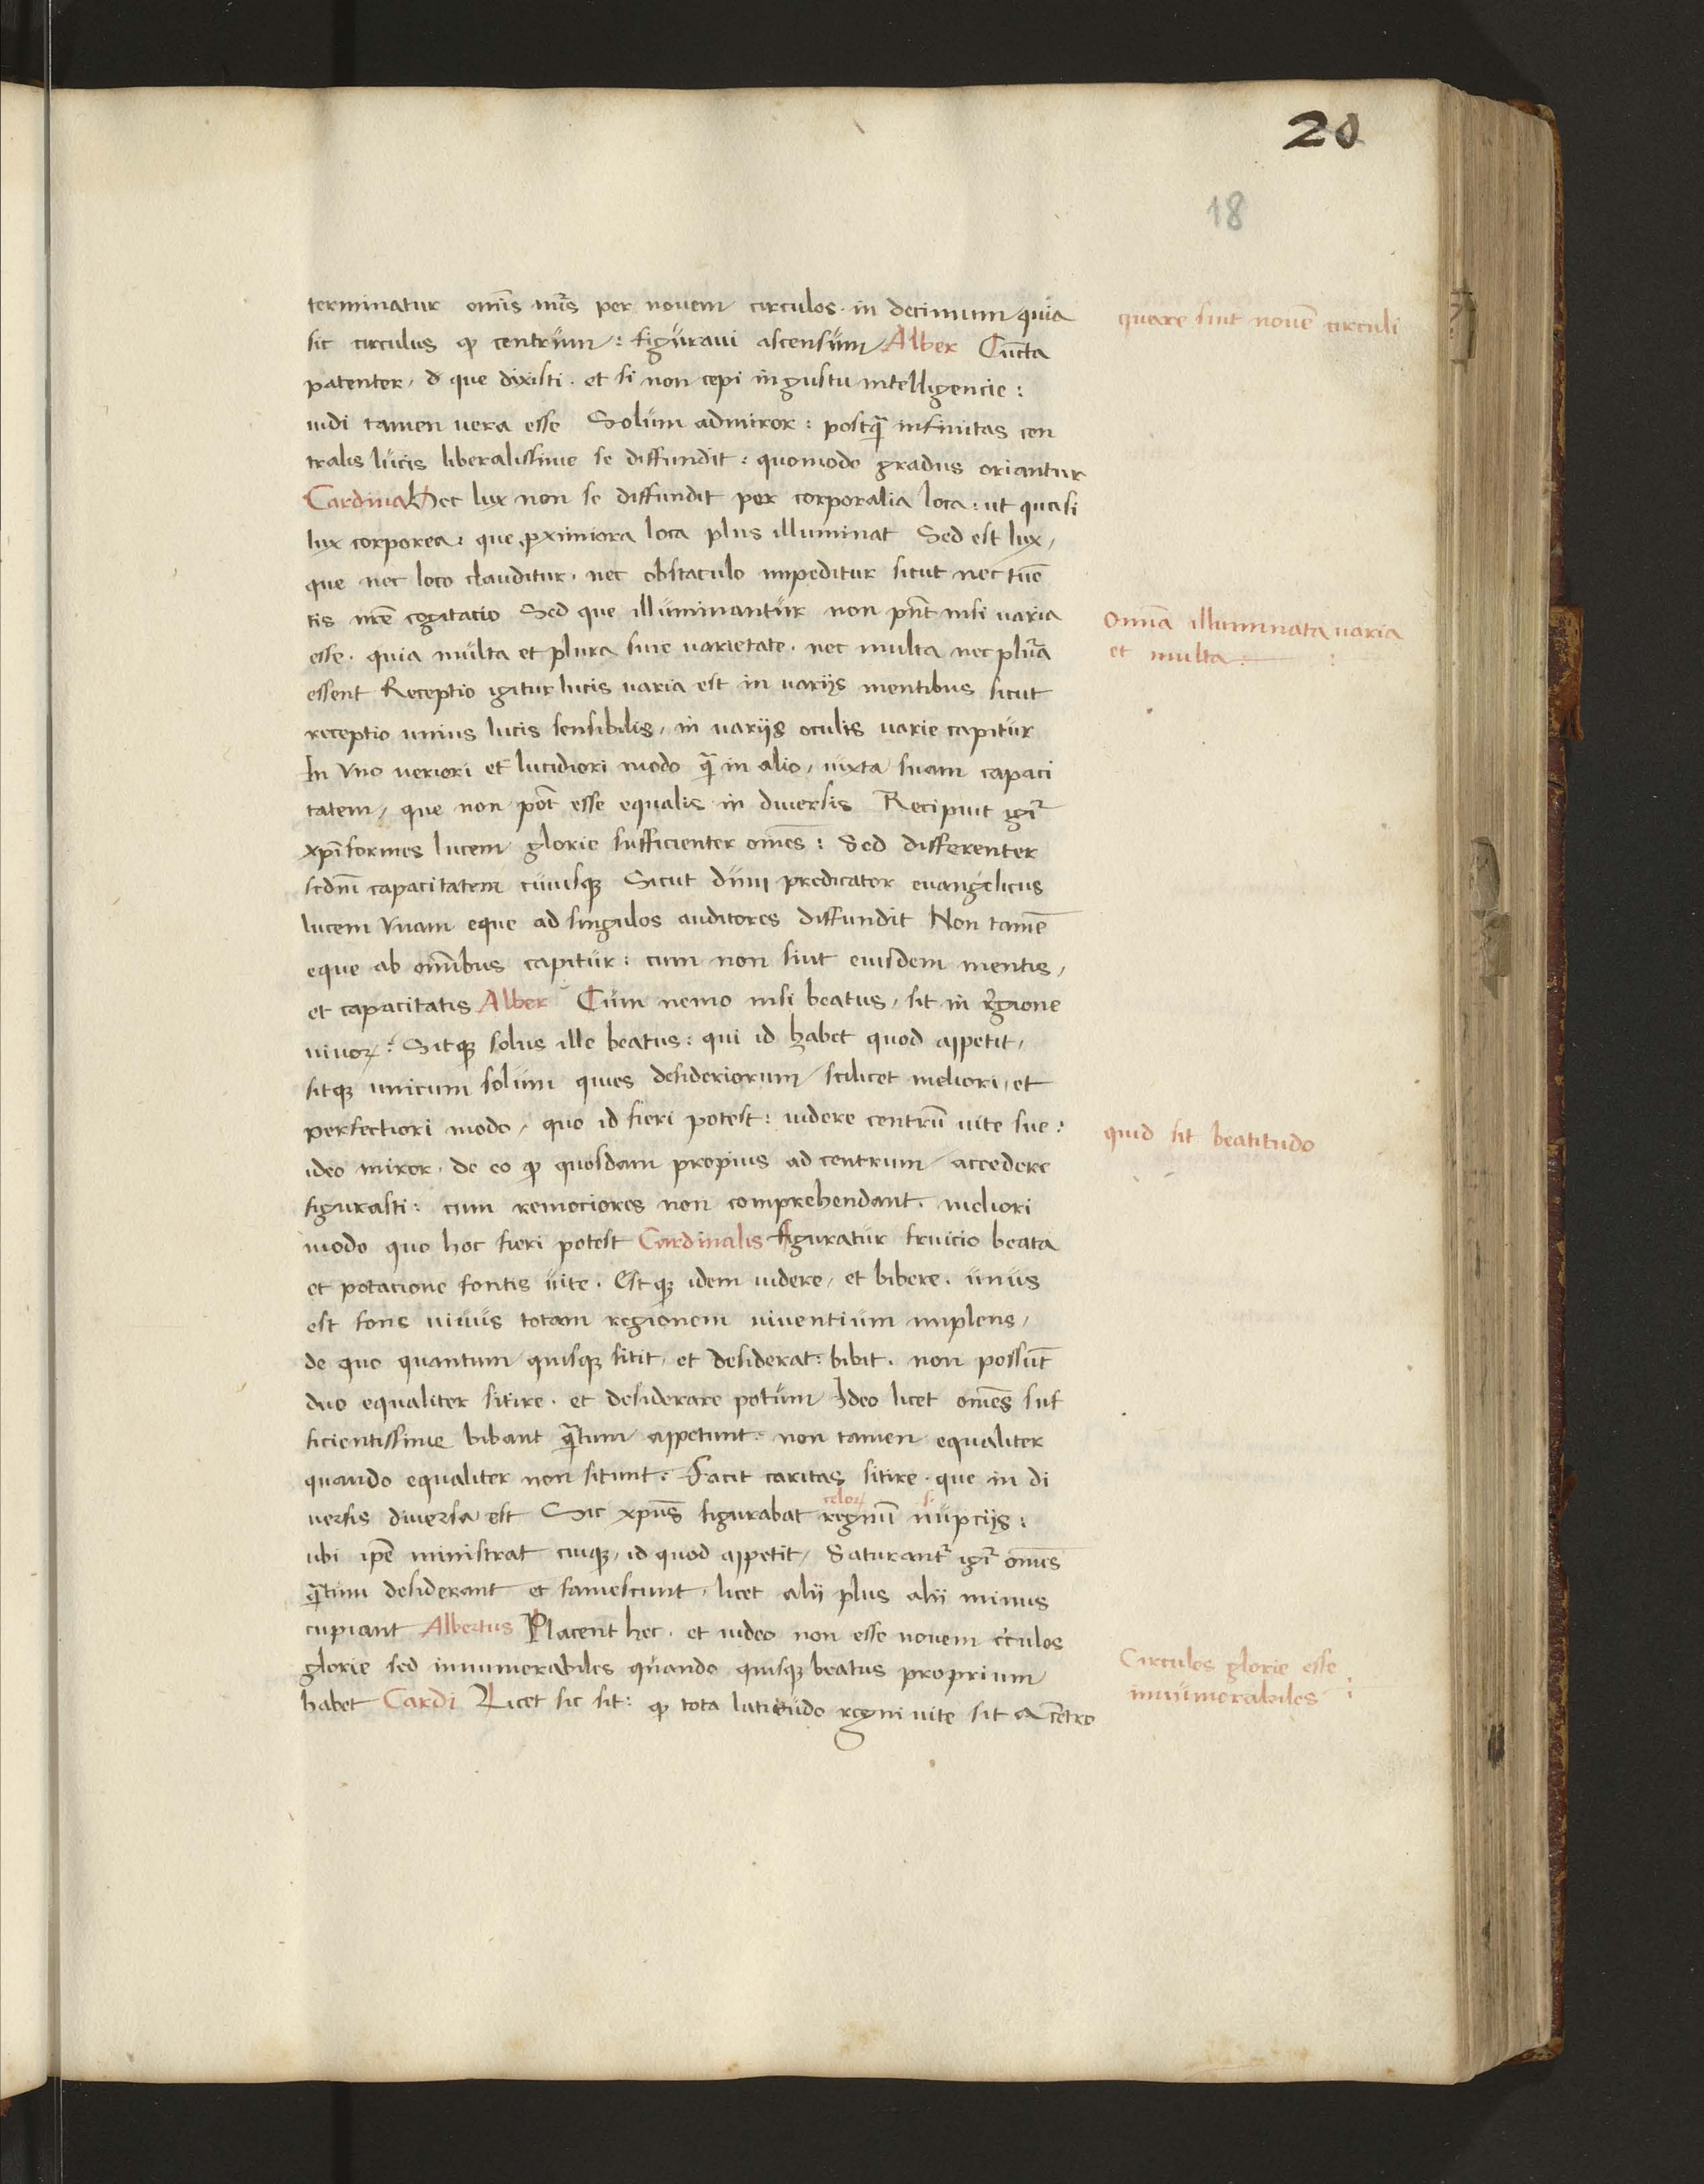 20
18
terminatur om̄is nūs per nouem circulos · in decimum quia
quare sint nouē circuli
sic circulus ꝙ centrum : figuraui ascensum Alber Cūcta
patenter, d que dixisti · et si non cepi in gustu intelligencie :
uidi tamen uera esse Solum admiror : postq̄ infinitas cen
tralis lucis liberalissime se diffundit : quomodo gradus oriantur
Cardinal Hec lux non se diffundit per corporalia loca : ut quasi
lux corporea : que ꝓximiora loca plus illuminat Sed est lux,
que nec loco clauditur · nec obstaculo impeditur sicut nec
tis nr̄e cogitacio Sed que illuminantur non pn̄t nisi varia
Omīa illuminata varia
et multa :
esse · quia multa et plura sine varietate · nec multa nec plura
essent Receptio igitur lucis varia est in varijs mentibus sicut
receptio unius lucis sensibilis, in varijs oculis varie capitur
In vno ueriori et lucidiori modo q̄ in alio, iuxta suam capaci
tatem, que non pōt esse equalis in diuersis Recipiūt igr̄
xp̄iformes lucem glorie sufficienter om̄es : Sed differenter
scdm̄ capacitatem cuiusqꝫ Sicut dum predicator euangelicus
lucem vnam eque ad singulos auditores diffundit Non tamē
eque ab om̄ibus capitur : cum non sint eiusdem mentis,
et capacitatis Alber Cum nemo nisi beatus, sit in regione
uiuoꝝ : Sitqꝫ solus ille beatus : qui id habet quod appetit,
sitqꝫ unicum solum quies desideriorum, scilicet meliori, et
perfectiori modo, quo id fieri potest : uidere centrū uite sue :
quid sit beatitudo
ideo miror · de eo ꝙ quosdam propius ad centrum accedere
figurasti : cum remociores non comprehendant · meliori
modo quo hoc fieri potest Cardinalis figuratur fruicio beata
et potacione fontis uite · Estqꝫ idem uidere, et bibere · unus
est fons uiuus totam regionem viventium implens,
de quo quantum quisqꝫ sitit, et desiderat : bibit · non possūt
duo equaliter sitire · et desiderare potum Ideo licet om̄es suf
ficientissime bibant q̄tum appetunt · non tamen equaliter
quando equaliter non sitiunt : Facit caritas sitire · que in di
celoꝝ
uersis diuersa est Sic xp̄us figurabat regnū nupcijs :
ubi ip̄e ministrat cuiqꝫ, id quod appetit, Saturant᷑ igr̄ om̄es
q̄tum desiderant et famescunt, licet alii plus alii minus
cupiant Albertus Placent hec · et uideo non esse nouem c̄culos
glorie sed innumerabiles quando quisqꝫ beatus proprium
Circulos glorie esse
innumerabiles :
habet Cardi Licet sic sit : ꝙ tota latitudo regni uite sit a cētro